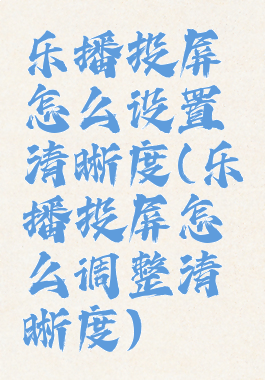 乐播投屏
怎么设置
清晰度(乐
播投屏怎
么调整清
晰度)